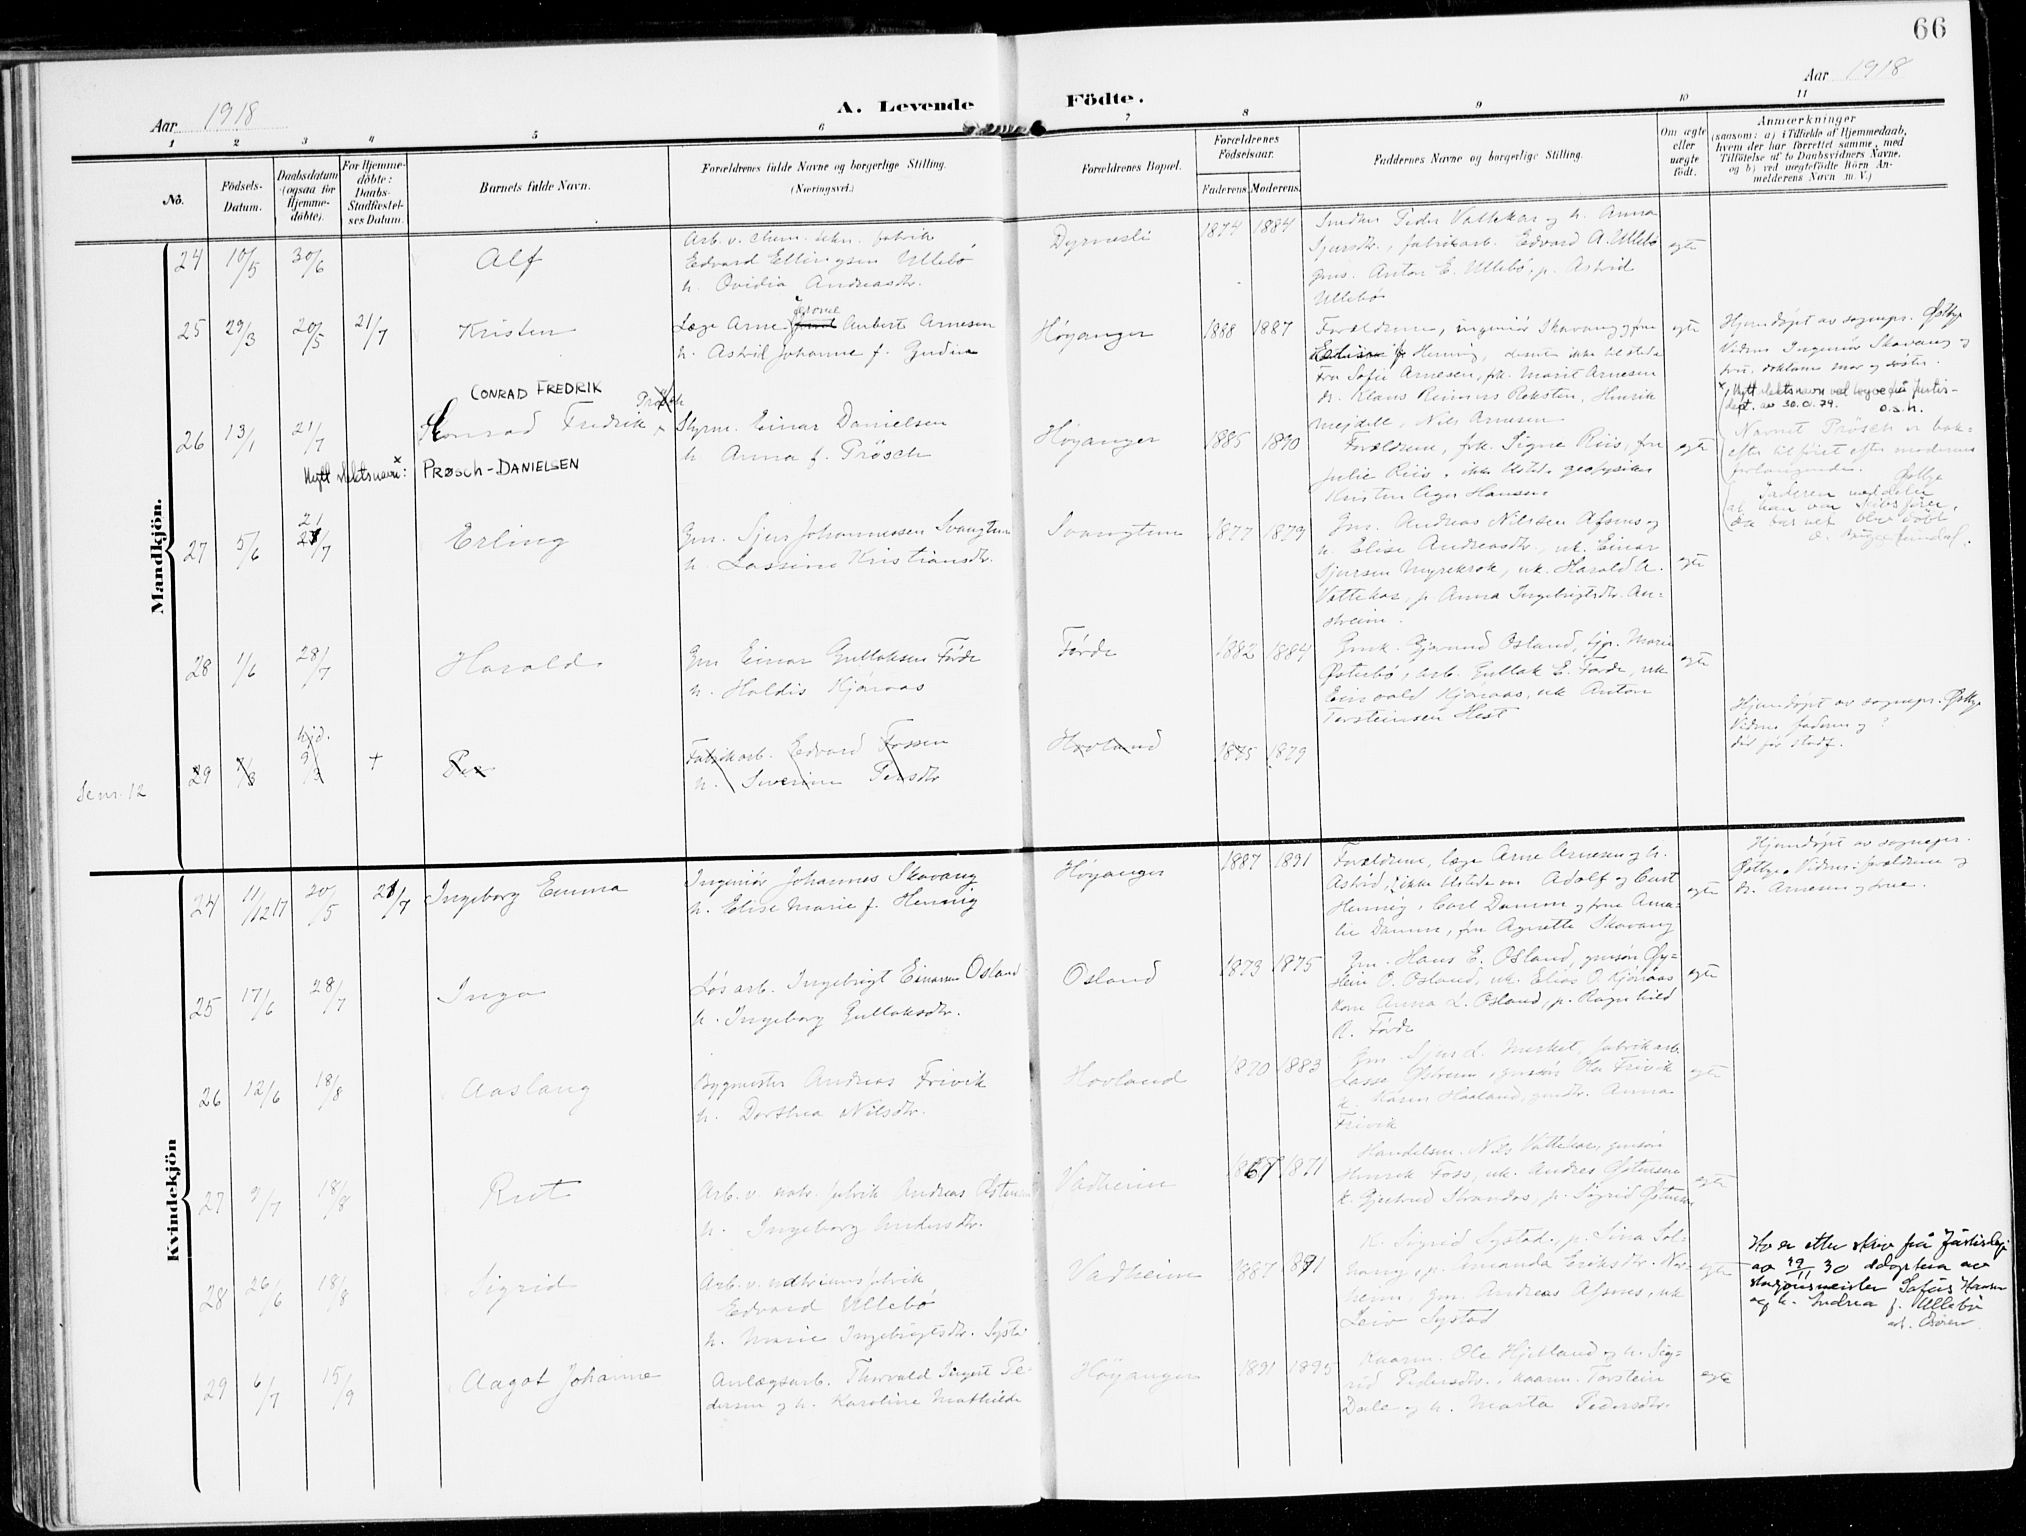 66
Aar 1918
A. Levende
Födte.
Aar 1918
1 2 3 4 5 6 7 8 9 10 11
No.
Födsels-
Datum.
Daabsdatum
(ogsaa for
Hjemme-
døbte).
For Hjemme-
döbte:
Daabs-
Stadfæstel-
ses Datum.
Barnets fulde Navn.
Forældrenes fulde Navne og borgerlige Stilling.
(Næringsvei.)
Forældrenes Bopæl.
Forældrenes
Födselsaar.
Faderens. Moderens.
Faddernes Navne og borgerlige Stilling.
Om ægte
eller
uægte
födt.
Anmærkninger
(saasom: a) i Tilfælde af Hjemmedaab,
hvem der har forrettet samme, med
Tilföielse af to Daabsvidners Navne,
og b) ved uægtefödte Börn An-
melderens Navn m. V.)
Mandkjön.
24 10/5 30/6 Alf
Edvard Ellingsen Ullebö
h. Ovidia Andreasdtr.
Dyrnesli 1874 1884
Smed Peder Vattekar og h. Anna
Sjursdtr., fabrikarb. Edvard A. Ullebö
gms. Anton E. Ullebö, p. Astrid
Ullebö
egte
25 29/3 20/5 21/7 Kristen
Læge Arne Aubert Arnesen
h. Astrid Johanne f. Gudim
Høyanger 1888 1887
Forældrene, ingeniör Skavang og frue
Hennig, disse ikke tilstede
Fru Sofie Arnesen, frk. Marit Arnesen
dr. Klaus Reimers Reksten, Henrik
Mejdell, Nils Arnesen
egte
Hjemdøpt av sognepr. Østbye
Vidner Ingeniör Skavang og
CONRAD FREDRIK
26 13/1 21/7 Konrad Fredrik
Nytt slektsnavn x: PRØSCH-DANIELSEN
Styrm. Einar Danielsen
h. Anna f. Prösch
Høyanger 1885 1890
Forældrene, frk. Signe Riis, fru
Julie Riis, ikke tilst. geofysiker
Kristen Ager Hansen.
egte
x) Nytt slektsnavn ved bevre frå Justis-
dept. av 30. 0.79. o.s.h.
Navnet Prösch er bak-
efter tilföiet efter moderens
forlangende. Østbye
Faderen meddeler
27 5/6 21/7 Erling
Gm. Sjur Johannessen Svangtun
h. Lassine Kristiansdtr.
Svangtun 1877 1879
Gm. Andreas Nilssen Afsnes og
h. Elise Andreasdtr., uk. Einar
Sjursen Myrekrok, uk. Harald A.
Vattekar, p. Anna Ingebrigtsdtr. An-
streim.
egte
28 1/6 28/7 Harald
Gm Einar Gullaksen Förde
h. Haldis Kjöraas
Förde 1882 1884
Gmk. Gjermund Osland, tjp. Marie
Østerbö, arb. Gullak E. Förde, uk
Kjöraas, uk Anton
Torsteinsen Hest
egte
Se nr. 12
29 9/3 hjd. 9/3 + Per
Fabrikarb. Edvard Fossen
h. Severine Persdtr
Hovland 1875 1879
Hjemdöpt av sognepr. Østbye
Vidner faderen og ?
död før stadf.
Kvindekjön
24 11/12 17 20/5 21/7 Ingeborg Emma
Ingeniör Johannes Skavang
h. Elise Marie f. Hennig
Høyanger 1887 1891
Forældrene, læge Arne Arnesen og h.
Astrid, ikke tilstede var Adolf og Curt
Hennig, Carl Damm og frue Ama-
lie Damm, fru Agnette Skavang
egte
Hjemdøpt av sognepr.
Østbye. Vidner: forældrene og
dr. Arnesen og frue.
25 17/6 28/7 Inga
Lösarb. Ingebrigt Einarsen Osland
h. Ingeborg Gullaksdtr.
Osland 1873 1875
Gm. Hans E. Osland, gmsön Øy-
stein O. Osland, uk. Elias O Kjöraas
kone Anna L. Osland, p. Ragnhild
A. Förde
egte
26 12/6 18/8 Aaslaug
Bygmester Andreas Frivik
h. Dorthea Nilsdtr.
Hovland 1870 1883
Gm Sjur L. fabrikarb.
Lasse Østrem, gmsön Ole Frivik
k. Karen Haaland, gmdtr. Anna
Frivik
egte
27 9/7 18/8 Rut
Arb. v. natr. fabrik Andreas Østensen
h. Ingeborg Andersdtr.
Vadheim 1867 1871
Handelsm. Nils Vattekar, gmsön
Henrik Foss, uk. Andres Østensen
k. Gjertrud Strandos, p. Sigrid Østensen
egte
28 26/6 18/8 Sigrid
Arb. v. natriumsfabrik
Edvard Ullebö
h. Marie Ingebrigtsdtr. Systa
Vadheim 1887 1891
K. Sigrid Systad, p. Lina Sol-
haug, p. Amanda Eriksdtr. Nor-
heim, gm. Andreas Afsnes, uk
Leiv Systad
egte
Ho er etter skriv frå Justisdep.
av 19/11 30 adoptera av
stasjonsmeister Sofus Hansen
og h. Andrea f. Ullebö
29 6/7 15/9 Aagot Johanne
Anlægsarb. Thorvald Sigert Pe-
dersen og h. Karoline Mathilde
Høyanger 1891 1895
Kaarm. Ole Hjetland og h. Sig-
rid Pedersdtr., kaarm. Torstein
Dale og h. Marta Pedersdtr.
egte